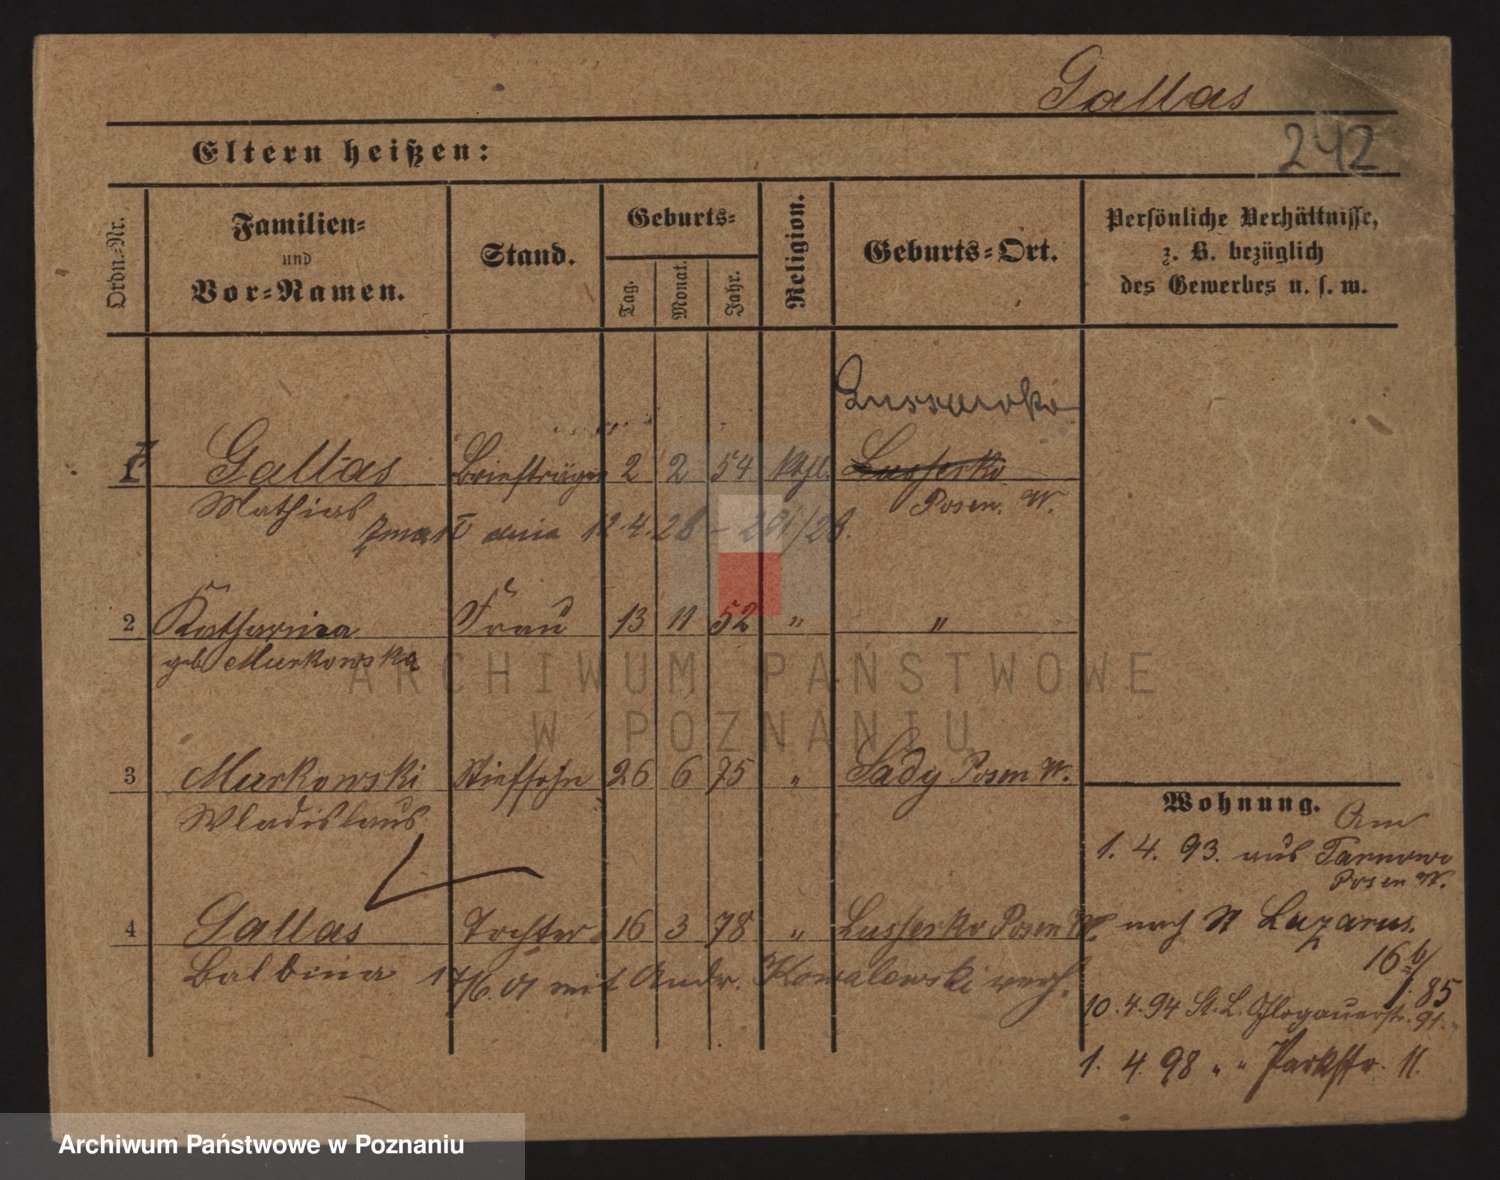 Gallas
242
Eltern heißen:
Ordn.-Nr.
Familien-
und
Vor-Namen.
Stand.
Geburts-
Tag.
Monat.
Jahr.
Religion.
Geburts-Ort.
Persönliche Verhältnisse,
z. B. bezüglich
des Gewerbes u. s. w.
1 Gallas Briefträger 2 2 54 kthl. Lussowko
Mathias Posen. W.
zmarł dnia 12.4.28 – 201/28.
2 Katharina Frau 13 11 52 " "
geb Murkowska
3 Murkowski Stiefsohn 26 6 75 " Sady Posen W.
Wladislaus
4 Gallas Tochter 16 3 78 " Lussowko Posen W.
Balbina 17/6.01 mit Andr. Kowalewski verh.
Wohnung. Am
1. 4. 93. aus Tarnowo
Posen W.
nach St Lazarus.
10.4.94 St. L. Glogauerstr. 91.
1. 4. 98 " " Parkstr. 11.
ARCHIWUM PAŃSTWOWE
W POZNANIU
Archiwum Państwowe w Poznaniu